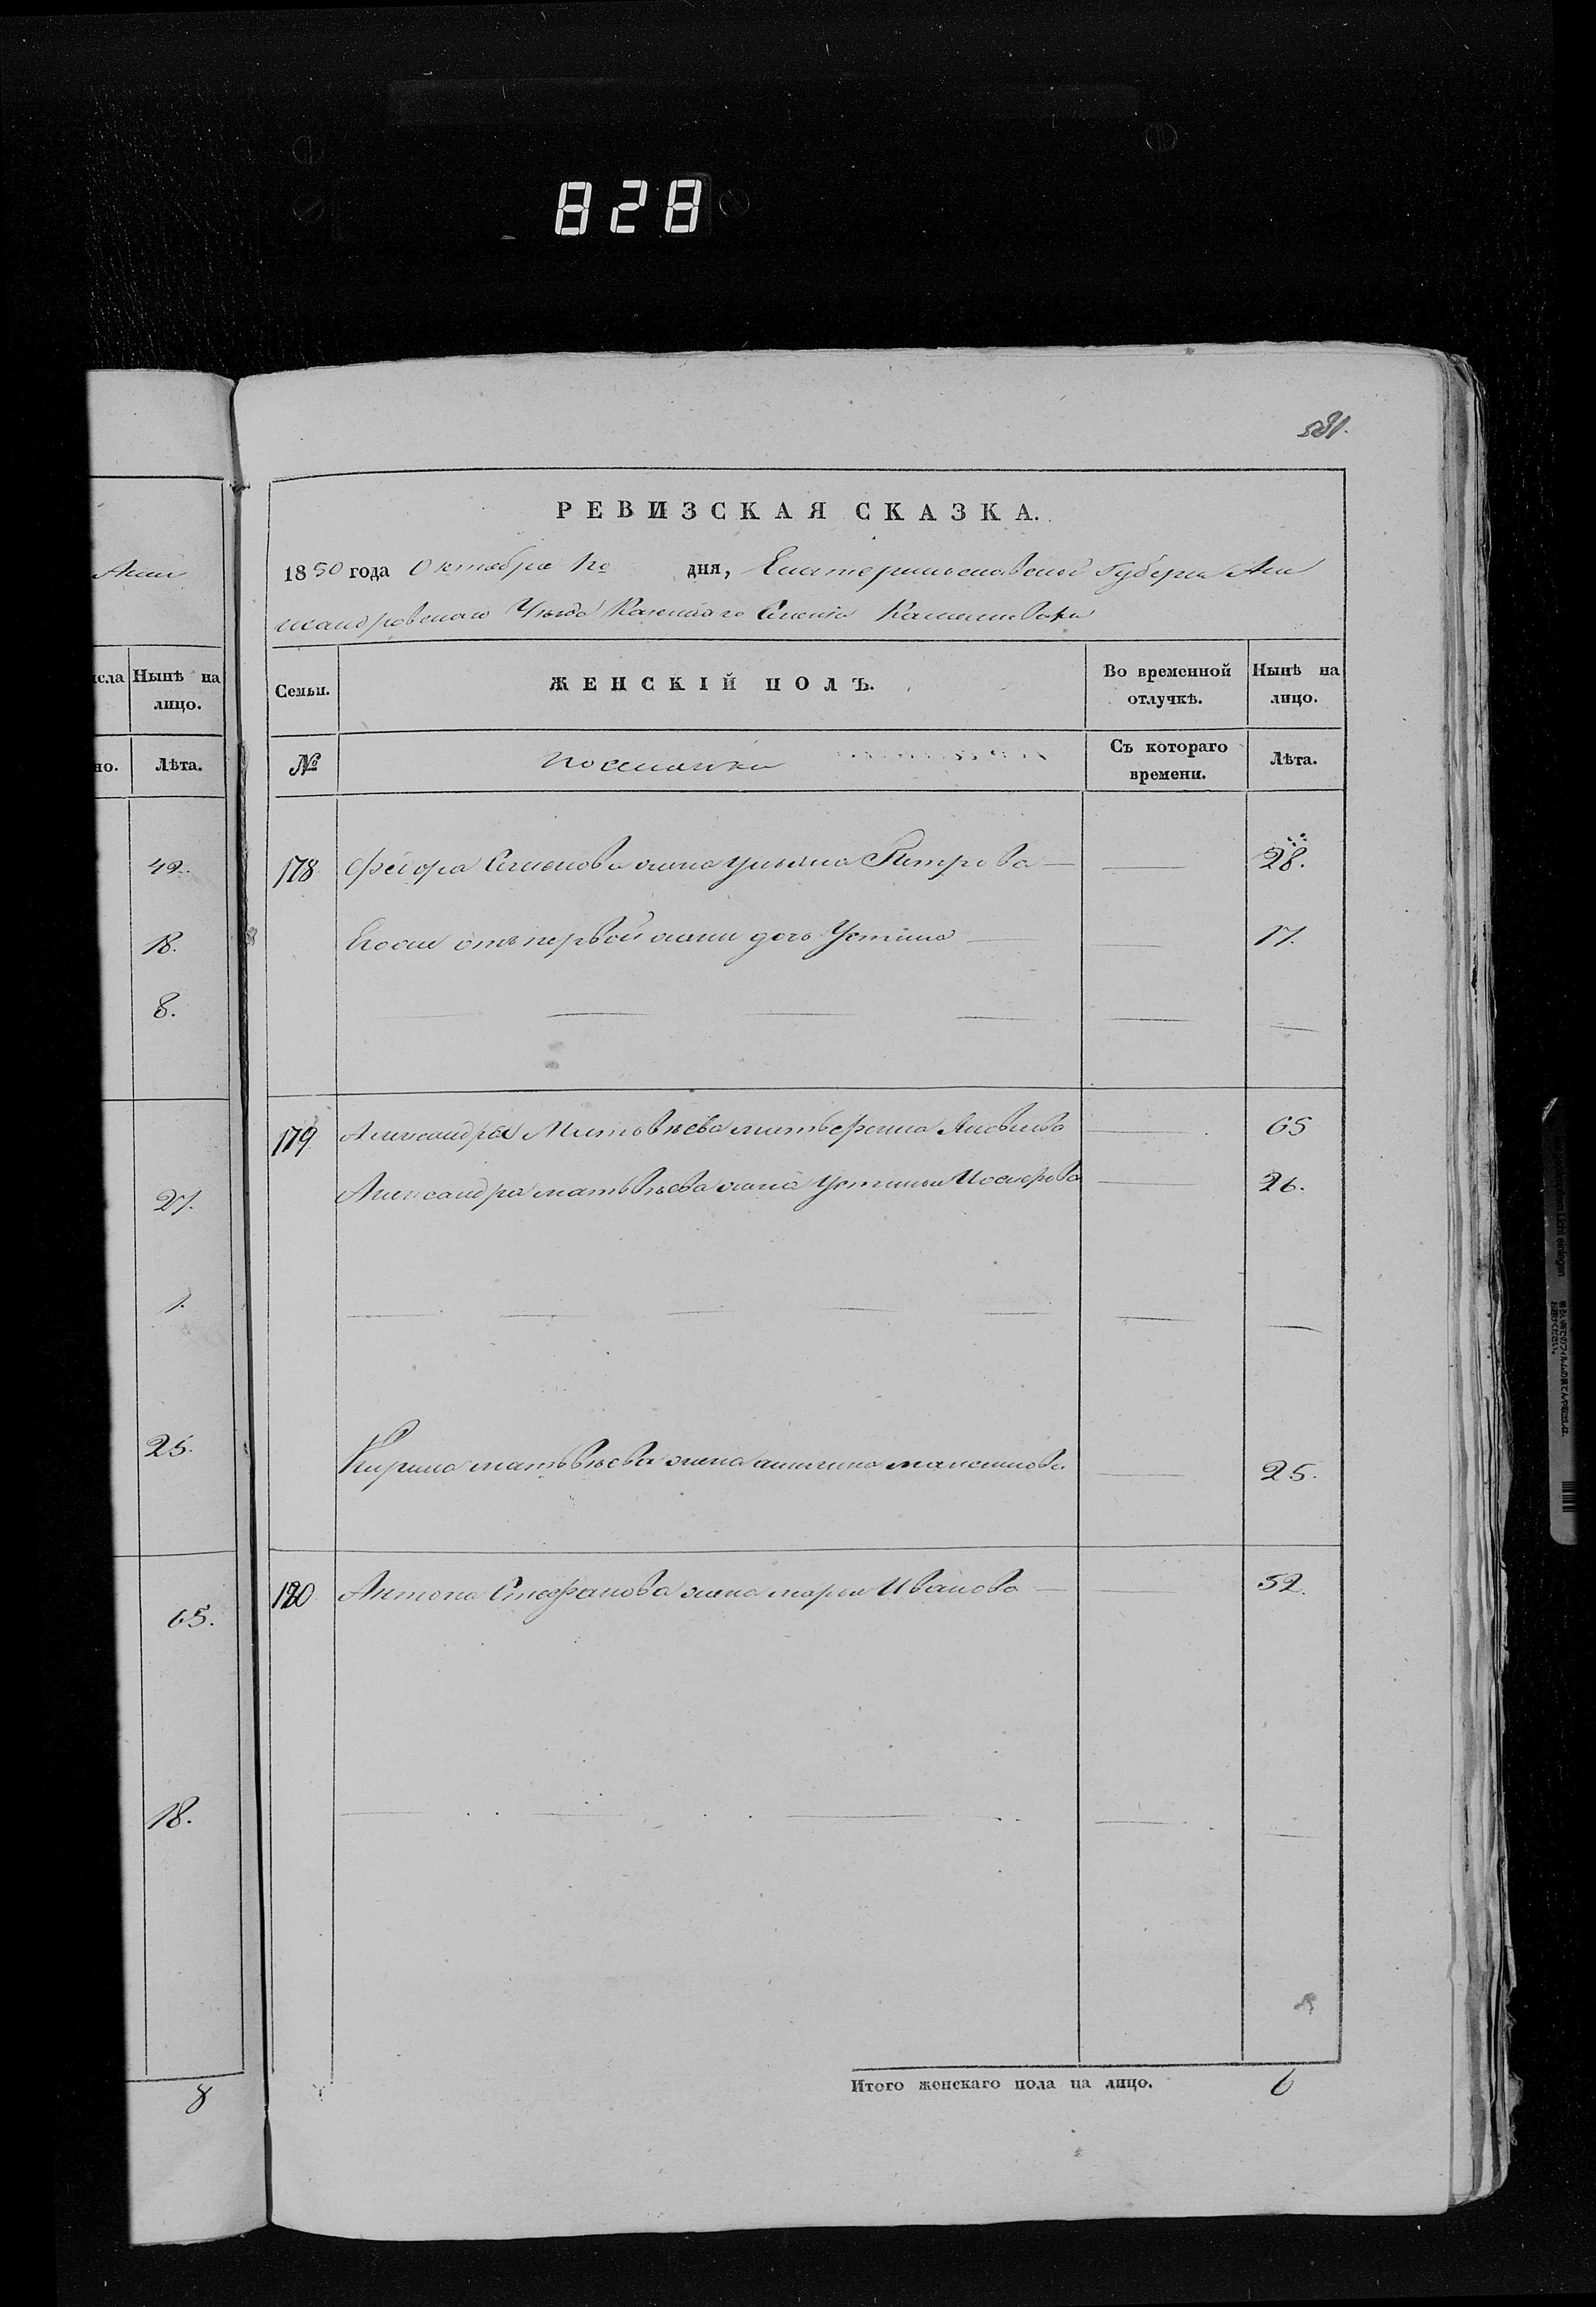 828
581.
Анн
исла Нынѣ на
лицо.
но. Лѣта.
42.
18.
8.
27.
1.
25.
65.
18.
8
РЕВИЗСКАЯ СКАЗКА.
1850 года Октября дня, Екатеринославской Губерн Але
ксандровскаго Уѣзда Казеннаго Селенія
Семьи. ЖЕНСКІЙ ПОЛЪ. Во временной отлучкѣ. Нынѣ на лицо.
№ Поселянки Съ котораго времени. Лѣта.
178 Федора Семенова жена Ульяна Петрова — — 28.
Егоже отъ первой жены дочь Устинья — — 17.
179 Александра Матвѣева мать Яковлева — 65
Александра Матвѣева жена Устинья — 26.
Кирила Матвѣева жена Максимова — 25.
180 Антона Стефанова жена Марья Иванова — — 52.
Итого женскаго пола на лицо. 6